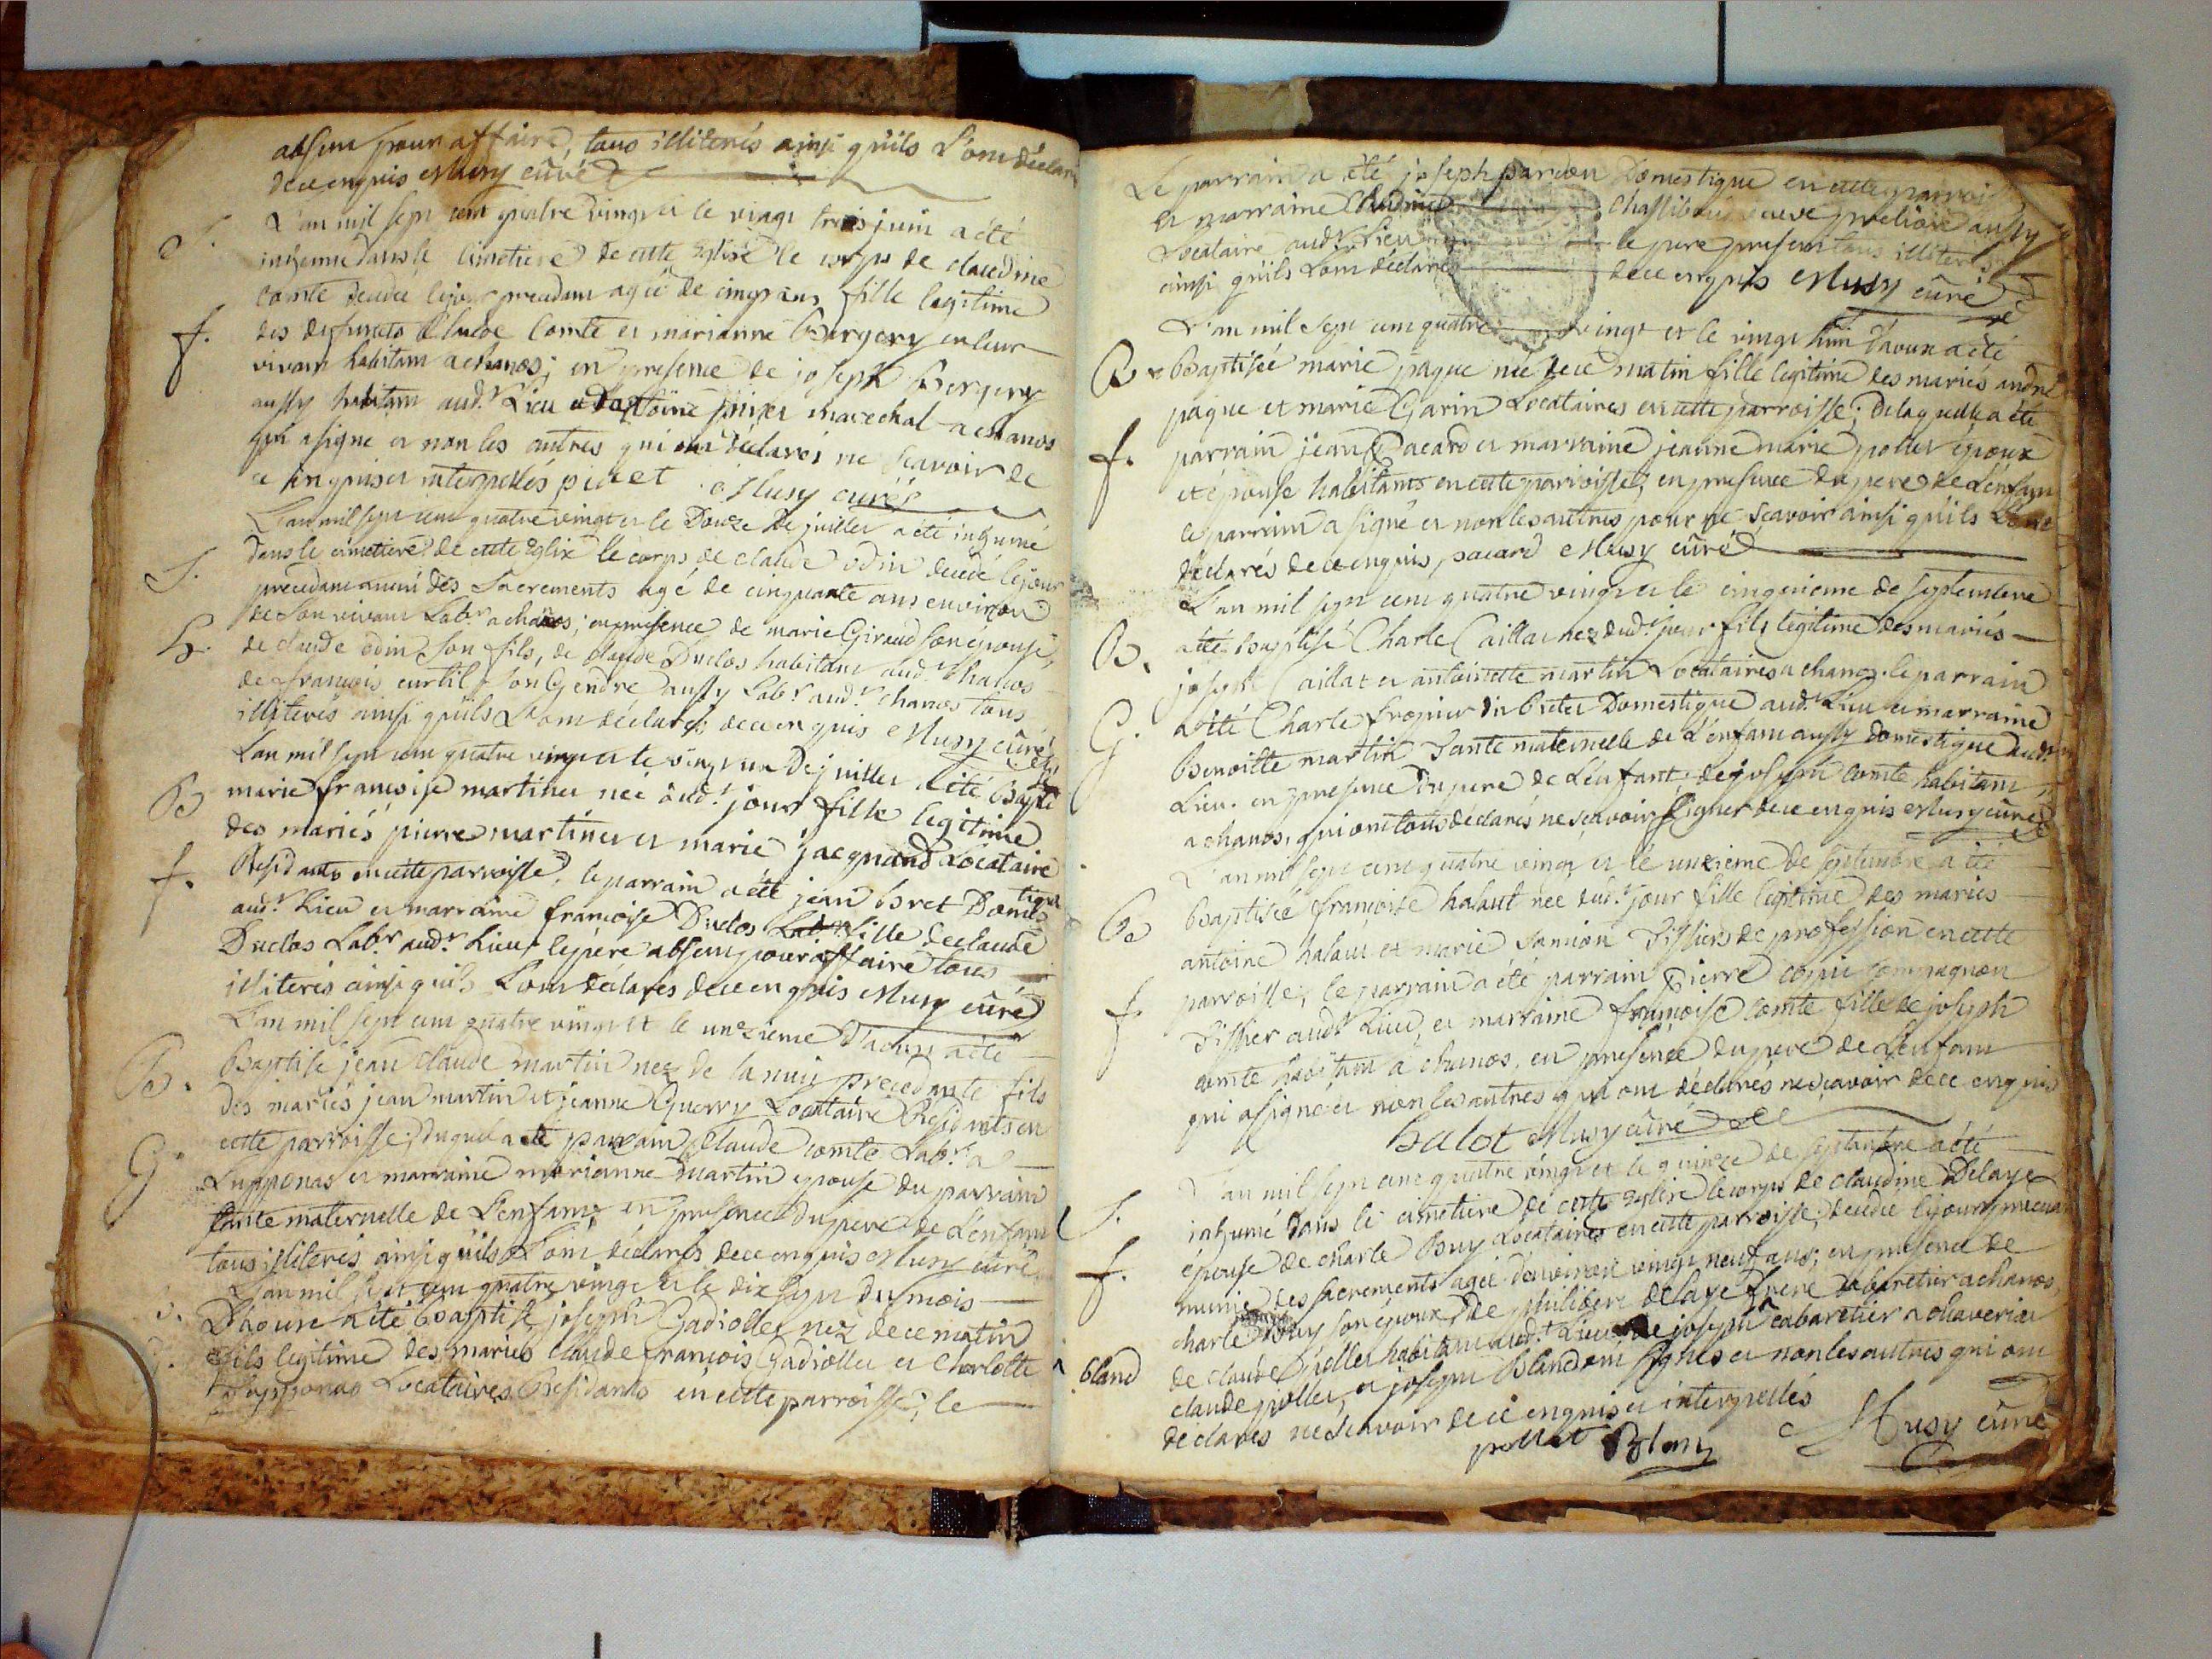 absent pour affaire, tous illiterés ainsi qu'ils L'ont déclaré
de ce enquis Musy cûré
S. L'an mil sept cent quatre vingt et le vingt trois juin a été
inhumé dans le cimetiere de cette Eglise le corps de claudine
Comte decedée le jour precedant agée de cinq ans fille legitime
f. des defuncts Claude Comte et marianne Bergery en leur
vivant habitant a chanos; en presence de joseph Bergery
aussy habitant aud.t Lieu et D'antoine marechal a chanos
qui a signé et non les autres qui ont déclarés ne scavoir de
ce enquis et interpellés Musy curé
L'an mil sept cent quatre vingt et le Douze de juillet a été inhumé
dans le cimetiere de cette Eglise le corps de claude odin decedé le jour
S. precedant muni des Sacrements agé de cinquante ans environ
de Son vivant Lab.r a chanos; en presence de marie Giraud son epouse,
H. de claude odin Son fils, de claude Duclos habitant aud.t chanos
de francois curtil Son Gendre aussy Lab.r aud.t chanos tous
illiterés ainsi qu'ils L'ont déclarés de ce enquis Musy cûré
L'an mil sept cent quatre vingt et le vingt un De juillet a été Baptisé
B marie francoise martinet née aud.t jour fille legitime
des mariés pierre martinet et marie jacquand Locataire
f. Residants en cette parroisse, le parrain a été jean Bret Domestique
aud.t Lieu et marraine francoise Duclos fille de claude
Duclos Lab.r aud.t Lieu, le pere absent pour affaire tous
illiterés ainsi qu'ils L'ont déclarés de ce enquis Musy cûré
L'an mil sept cent quatre vingt et le unzieme D'aoust a été
B. Baptisé jean claude martin nez de la nuit precedante fils
des mariés jean martin et jeanne Guerry Locataire Residants en
cette parroisse; duquel a été parrain Claude comte Lab.r a
G. Lupponas et marraine marianne martin epouse du parrain
tante maternelle de L'enfant; en presence du pere de L'enfant
tous illiterés ainsi qu'ils L'ont déclarés de ce enquis Musy cûré
L'an mil sept cent quatre vingt et le dix sept du mois
D'aoust a été Baptisé joseph Gadiollet nez de ce matin
G. fils legitime des mariés Claude francois Gadiollet et Charlotte
Locataires Residants en cette parroisse; le
Le parrain a été joseph pardon Domestique en cette parroisse
et marraine Claudine veuve aussy
Locataire aud.t Lieu le pere present tous illiterés
ainsi qu'ils L'ont déclarés de ce enquis Musy cûré
L'an mil sept cent quatre vingt et le vingt huit D'aoust a été
B Baptisée marie paque née de ce matin fille legitime des mariés andré
paque et marie Garin Locataires en cette parroisse; De laquelle a été
f. parrain jean pacard et marraine jeanne marie pollet époux
et épouse habitants en cette parroisse; en presence du pere de L'enfant
le parrain a signé et non les autres pour ne scavoir ainsi qu'ils L'ont
déclarés de ce enquis, pacard Musy cûré
L'an mil sept cent quatre vingt et le cinquieme de septembre
B. a été Baptisé Charle Caillat nez dud.t jour fils legitime des mariés
joseph Caillat et antoinette martin Locataires a chanos. le parrain
G. a été Charle Domestique aud.t Lieu et marraine
Benoitte martin Tante maternelle de L'enfant aussy domestique aud.t
Lieu. en presence du pere de L'enfant; de joseph comte habitant
a chanos, qui ont tous déclarés ne scavoir signer de ce enquis Musy cûré
L'an mil sept cent quatre vingt et le unzieme de septembre a été
B Baptisée francoise halaut née dud.t jour fille legitime des mariés
antoine halaut et marie Tissier de profession en cette
parroisse; le parrain a été parrain Pierre compagnon
f. Tissier aud.t Lieu, et marraine francoise comte fille de joseph
comte habitant a chanos, en presence du pere de L'enfant
qui a signé et non les autres qui ont déclarés ne scavoir de ce enquis
halot Musy cûré
L'an mil sept cent quatre vingt et le quinze de septembre a été
S. inhumé dans le cimetiere de cette Eglise le corps de claudine Delaye
f. épouse de charle Buy Locataires en cette parroisse; decedée le jour precedant
munie des sacrements agée d'environ vingt neuf ans; en presence de
charle Buy son époux, de philibert delaye frere cabaretier a chanos,
^ bland de claude pollet habitant aud.t Lieu, de joseph ^ cabaretier a chaveriat
claude pollet, et joseph Bland ont signés et non les autres qui ont
declarés ne scavoir de ce enquis et interpellés
pollet Blanz Musy cûré